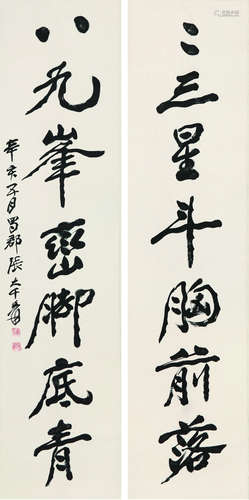 二三星斗胸前落
八九峯巒脚底青
辛亥子月蜀郡張大千爰